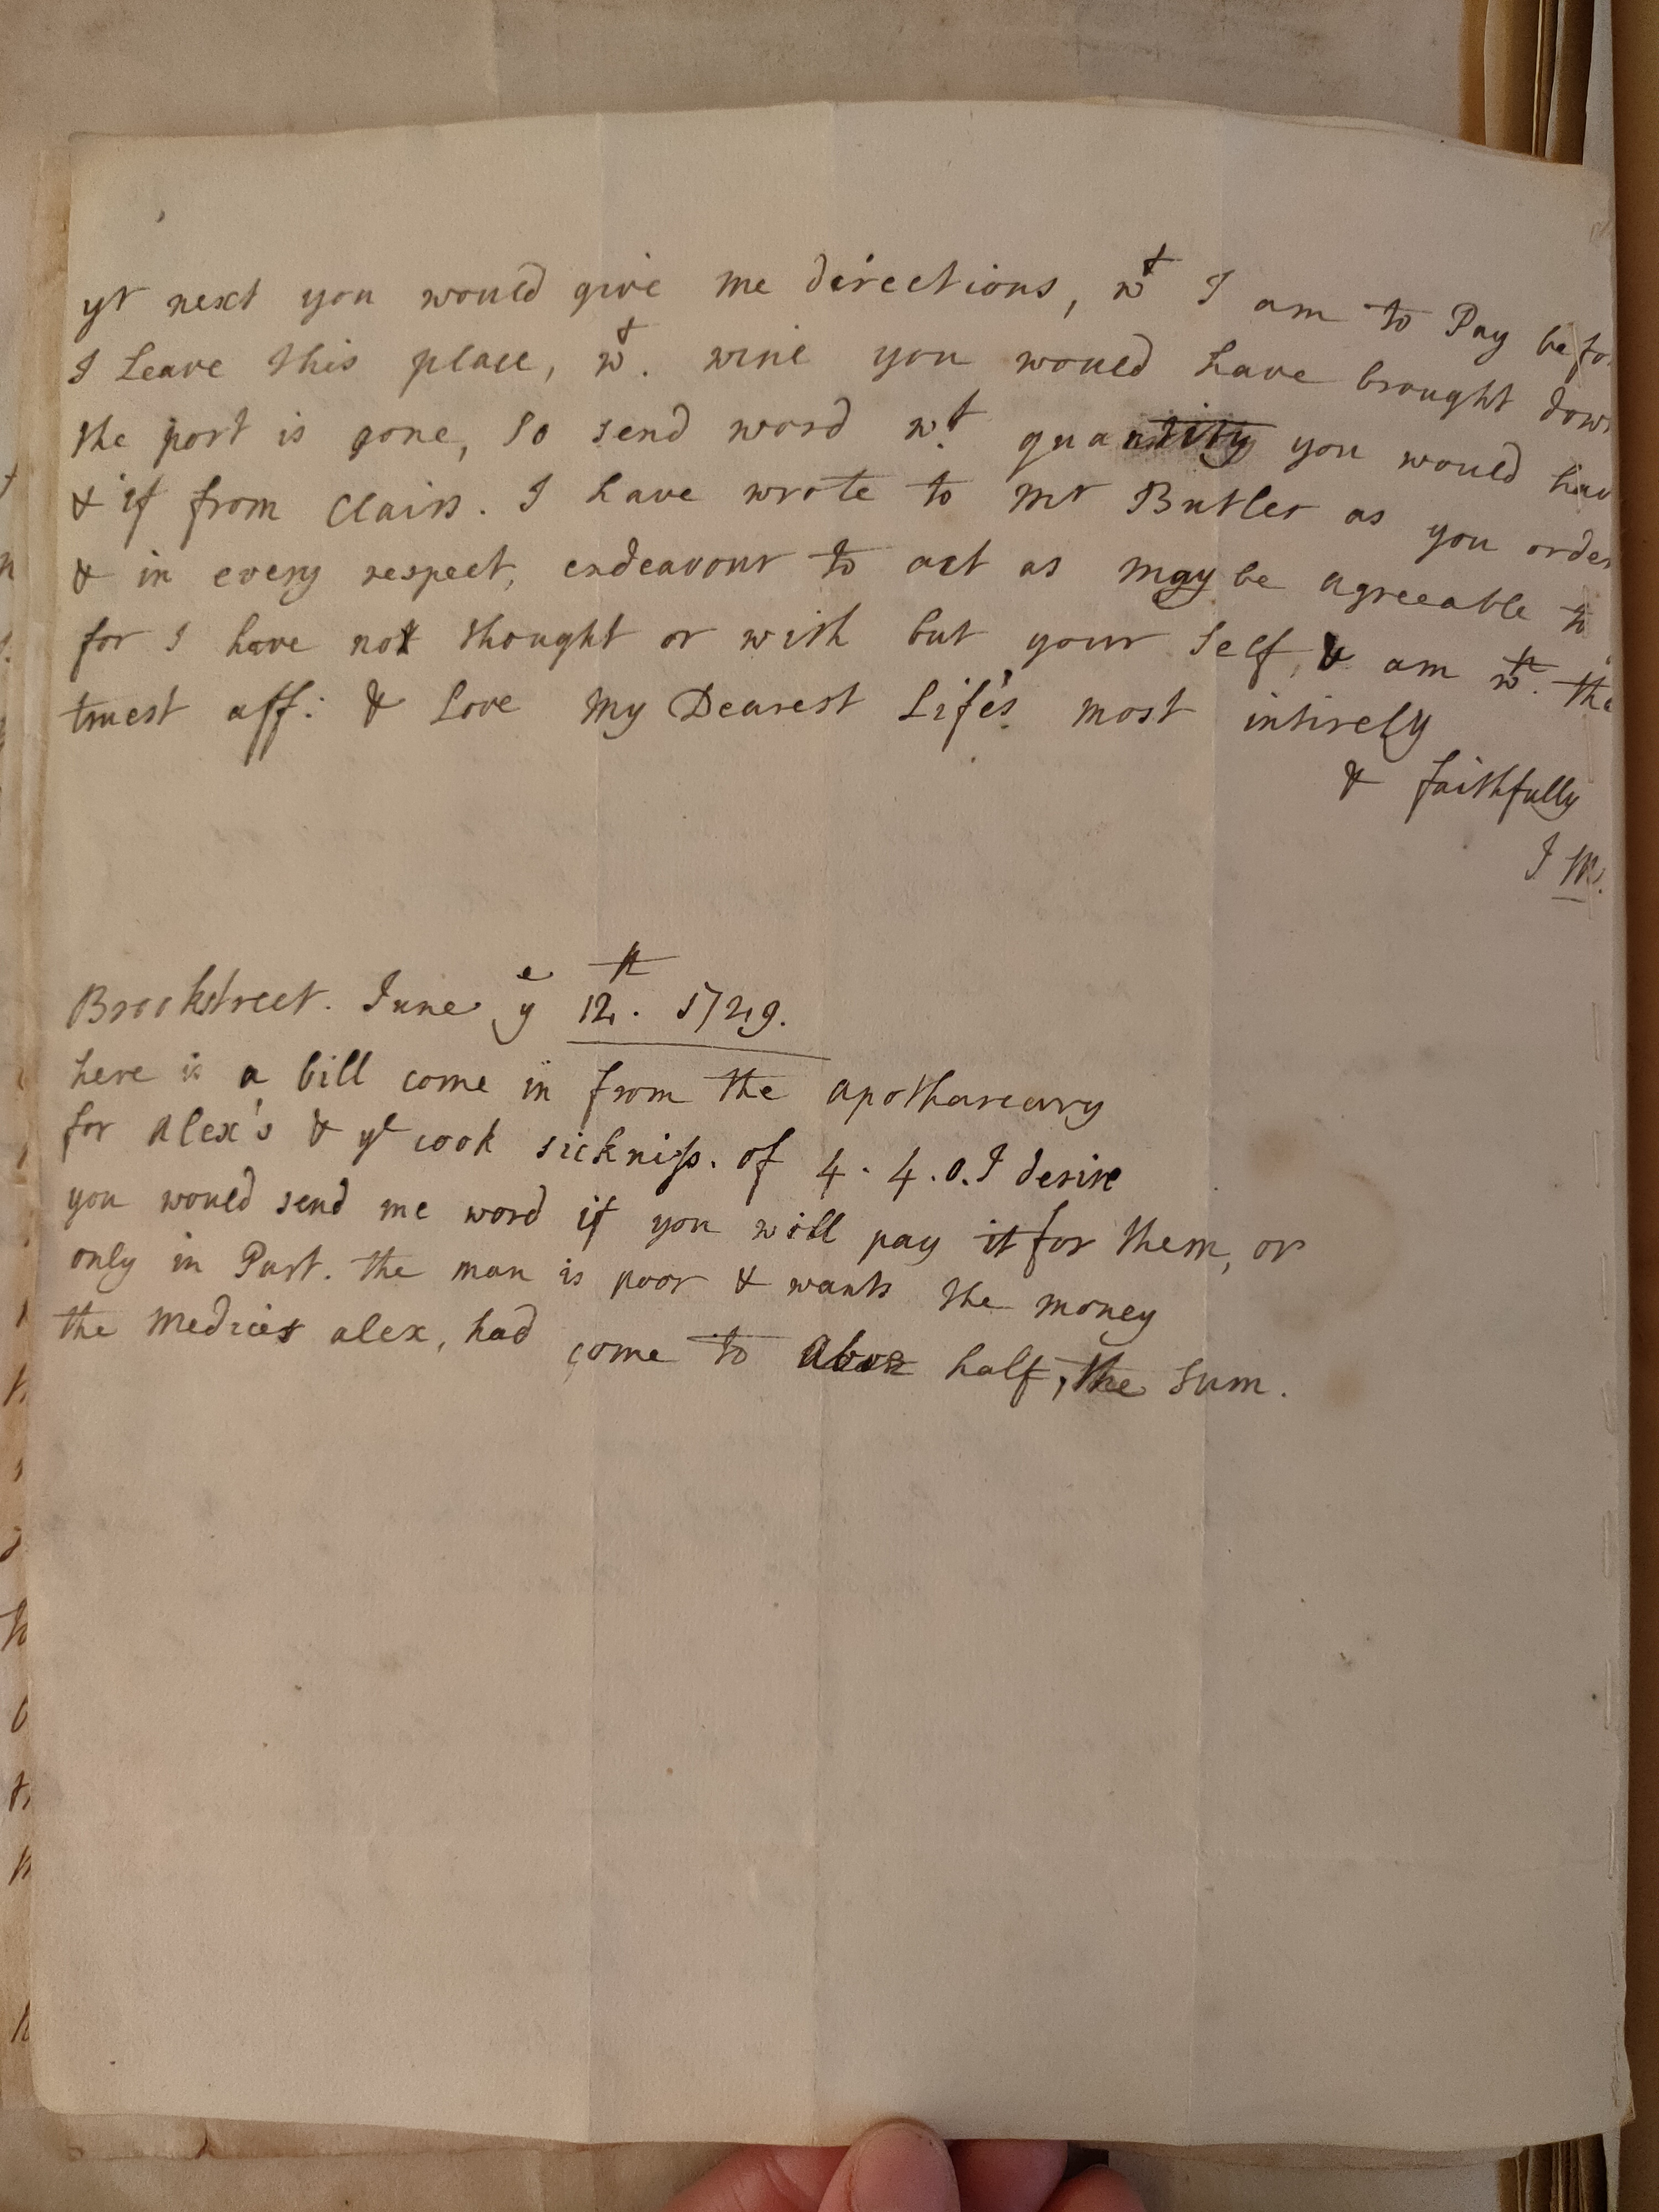 yr next you would give me directions, wt I am to Pay befo
I Leave this place, wt. wine you would have brought dow
the port is gone, so send word wt. quantity you would hav
& if from Clairs. I have wrote to Mr Butler as you order
& in every respect, endeavour to act as may be agreeable to
for I have not thought or wish but your self, & am wth. the
truest aff: & Love My Dearest Life's most intirely
& faithfully
I M.
Brookstreet. June ye 12th. 1729.
here is a bill come in from the apothareary
for Alex's & ye cook sickniss. of 4. 4. 0. I desire
you would send me word if you will pay it for them, or
only in Part. the man is poor & wants the money
the Medicies alex, had come to half, the sum.